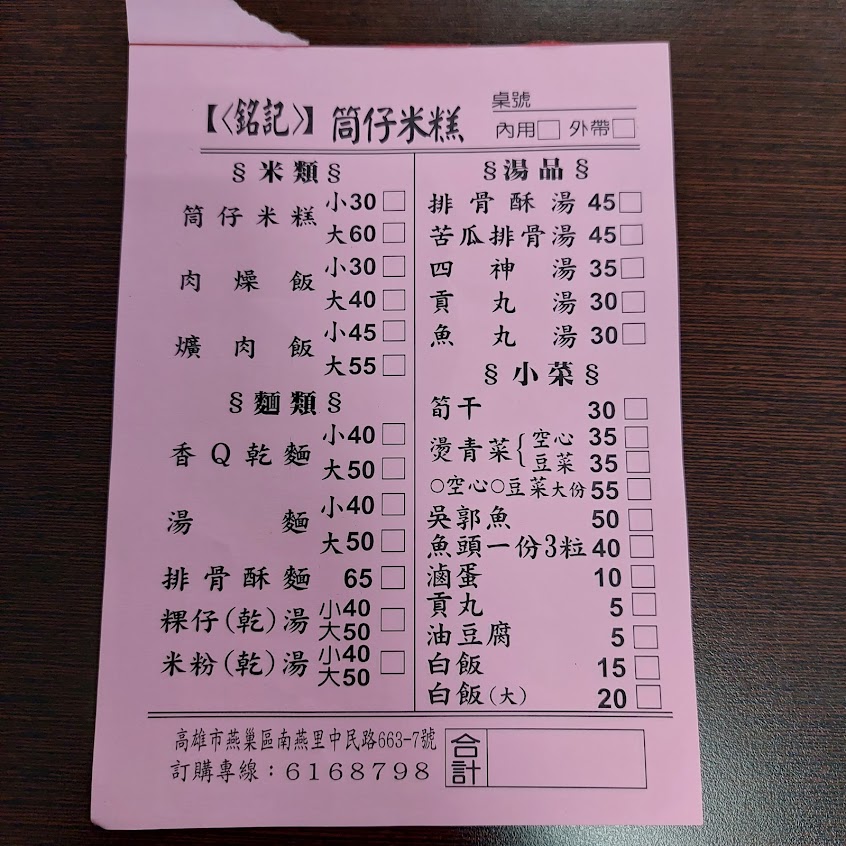 【〈銘記〉】筒仔米糕
桌號
內用□ 外帶□
§米類§
筒仔米糕 小30□
大60□
肉燥飯 小30□
大40□
爌肉飯 小45□
大55□
§麵類§
香Q乾麵 小40□
大50□
湯麵 小40□
大50□
排骨酥麵 65□
粿仔(乾)湯 小40 大50□
米粉(乾)湯 小40 大50□
§湯品§
排骨酥湯 45□
苦瓜排骨湯 45□
四神湯 35□
貢丸湯 30□
魚丸湯 30□
§小菜§
筍干 30□
燙青菜{空心 35□
豆菜 35□
○空心○豆菜大份 55□
吳郭魚 50□
魚頭一份3粒 40□
滷蛋 10□
貢丸 5□
油豆腐 5□
白飯 15□
白飯(大) 20□
高雄市燕巢區南燕里中民路663-7號
訂購專線：6168798
合計